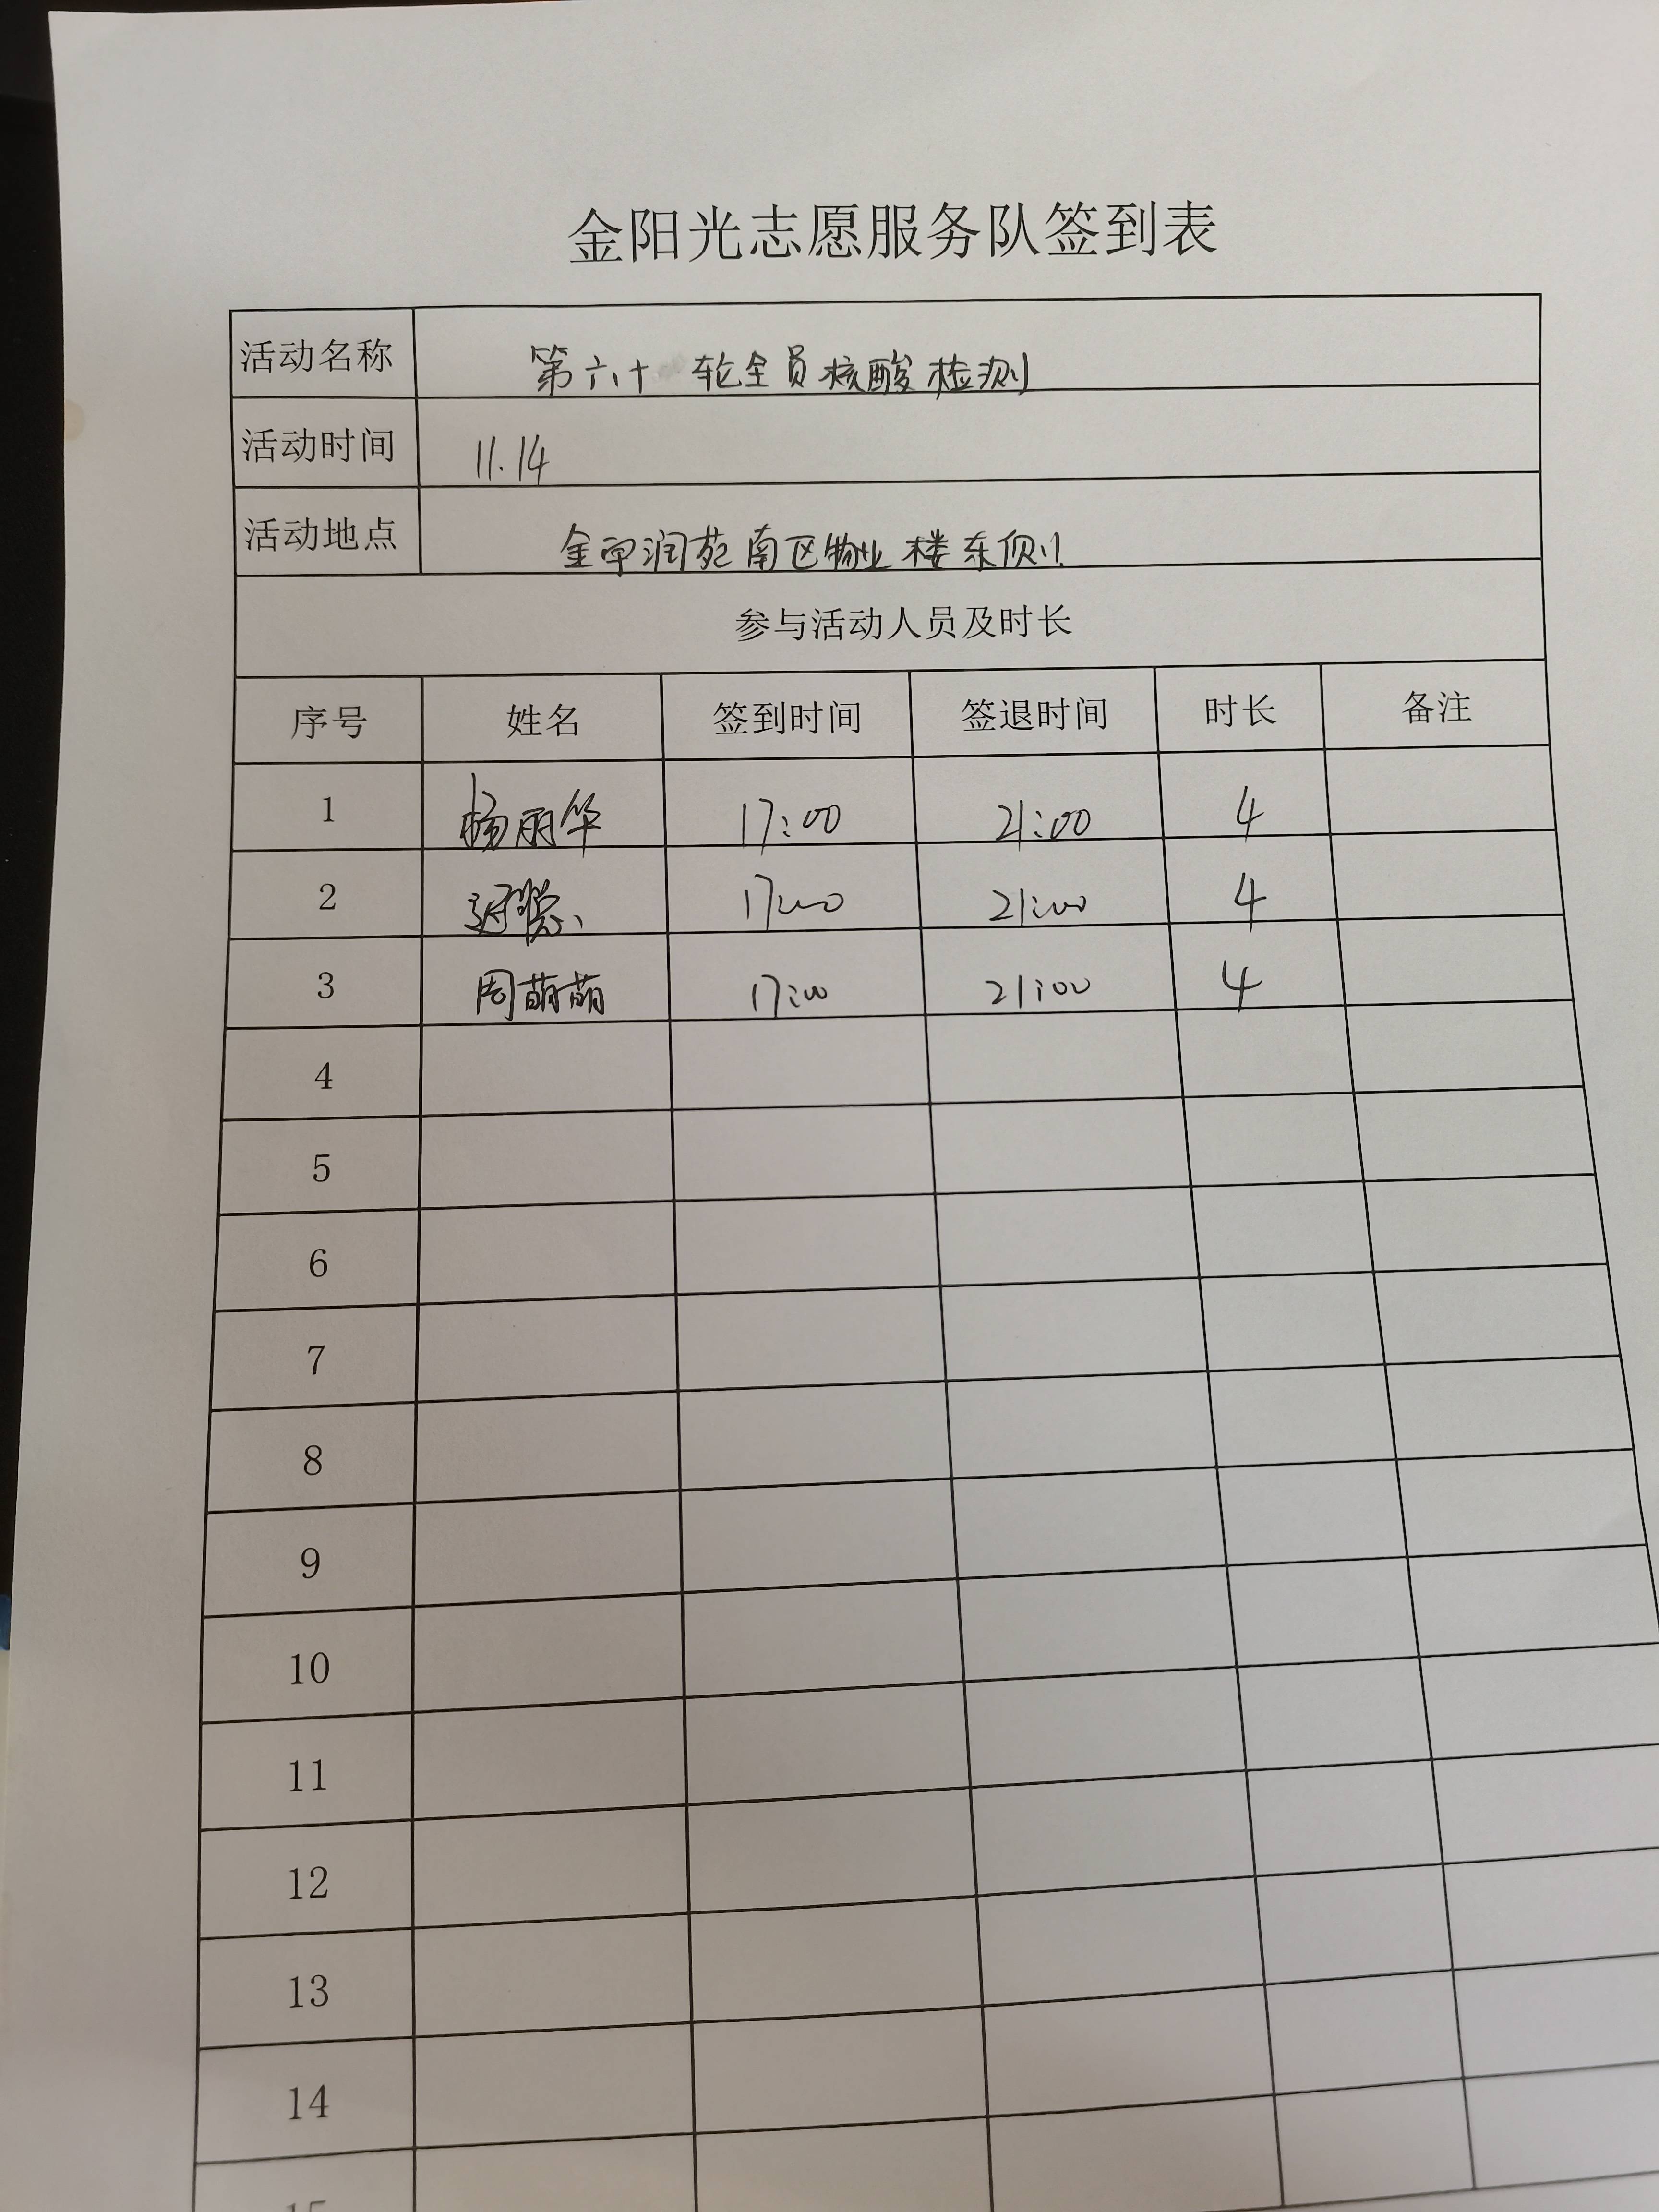 金阳光志愿服务队签到表
活动名称 第六十 轮全员核酸检测
活动时间 11.14
活动地点 金帝润苑南区物业楼东侧
参与活动人员及时长
序号 姓名 签到时间 签退时间 时长 备注
1 杨丽华 17:00 21:00 4
2 迟聪 17:00 21:00 4
3 周萌萌 17:00 21:00 4
4
5
6
7
8
9
10
11
12
13
14
15